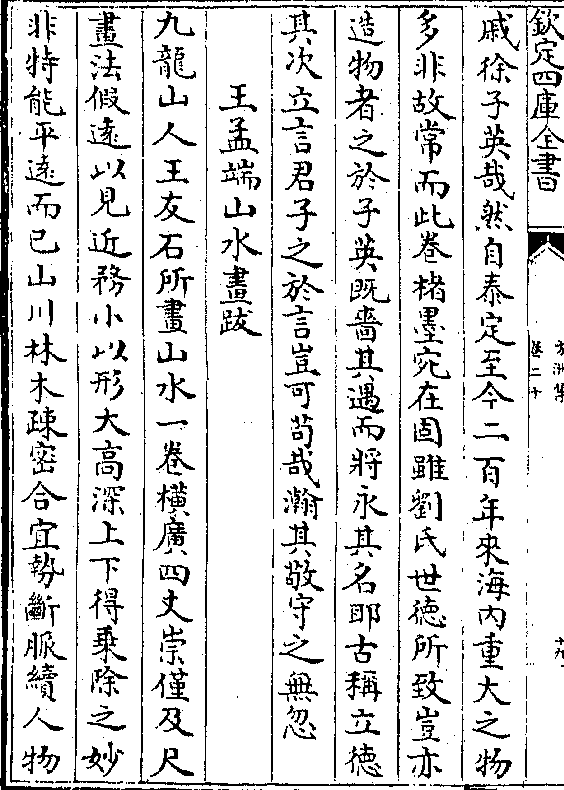 欽定四庫全書
方洲集
卷二十
戚徐子英哉然自泰定至今二百年來海内重大之物
多非故常而此卷楮墨宛在固雖劉氏世德所致豈亦
造物者之於子英既嗇其遇而將永其名耶古稱立德
其次立言君子之於言豈可苟哉瀚其敬守之無忽
王孟端山水畫跋
九龍山人王友石所畫山水一卷橫廣四丈崇僅及尺
畫法假遠以見近務小以形大高深上下得乗除之妙
非特能平遠而已山川林木疎密合宜勢斷脈續人物